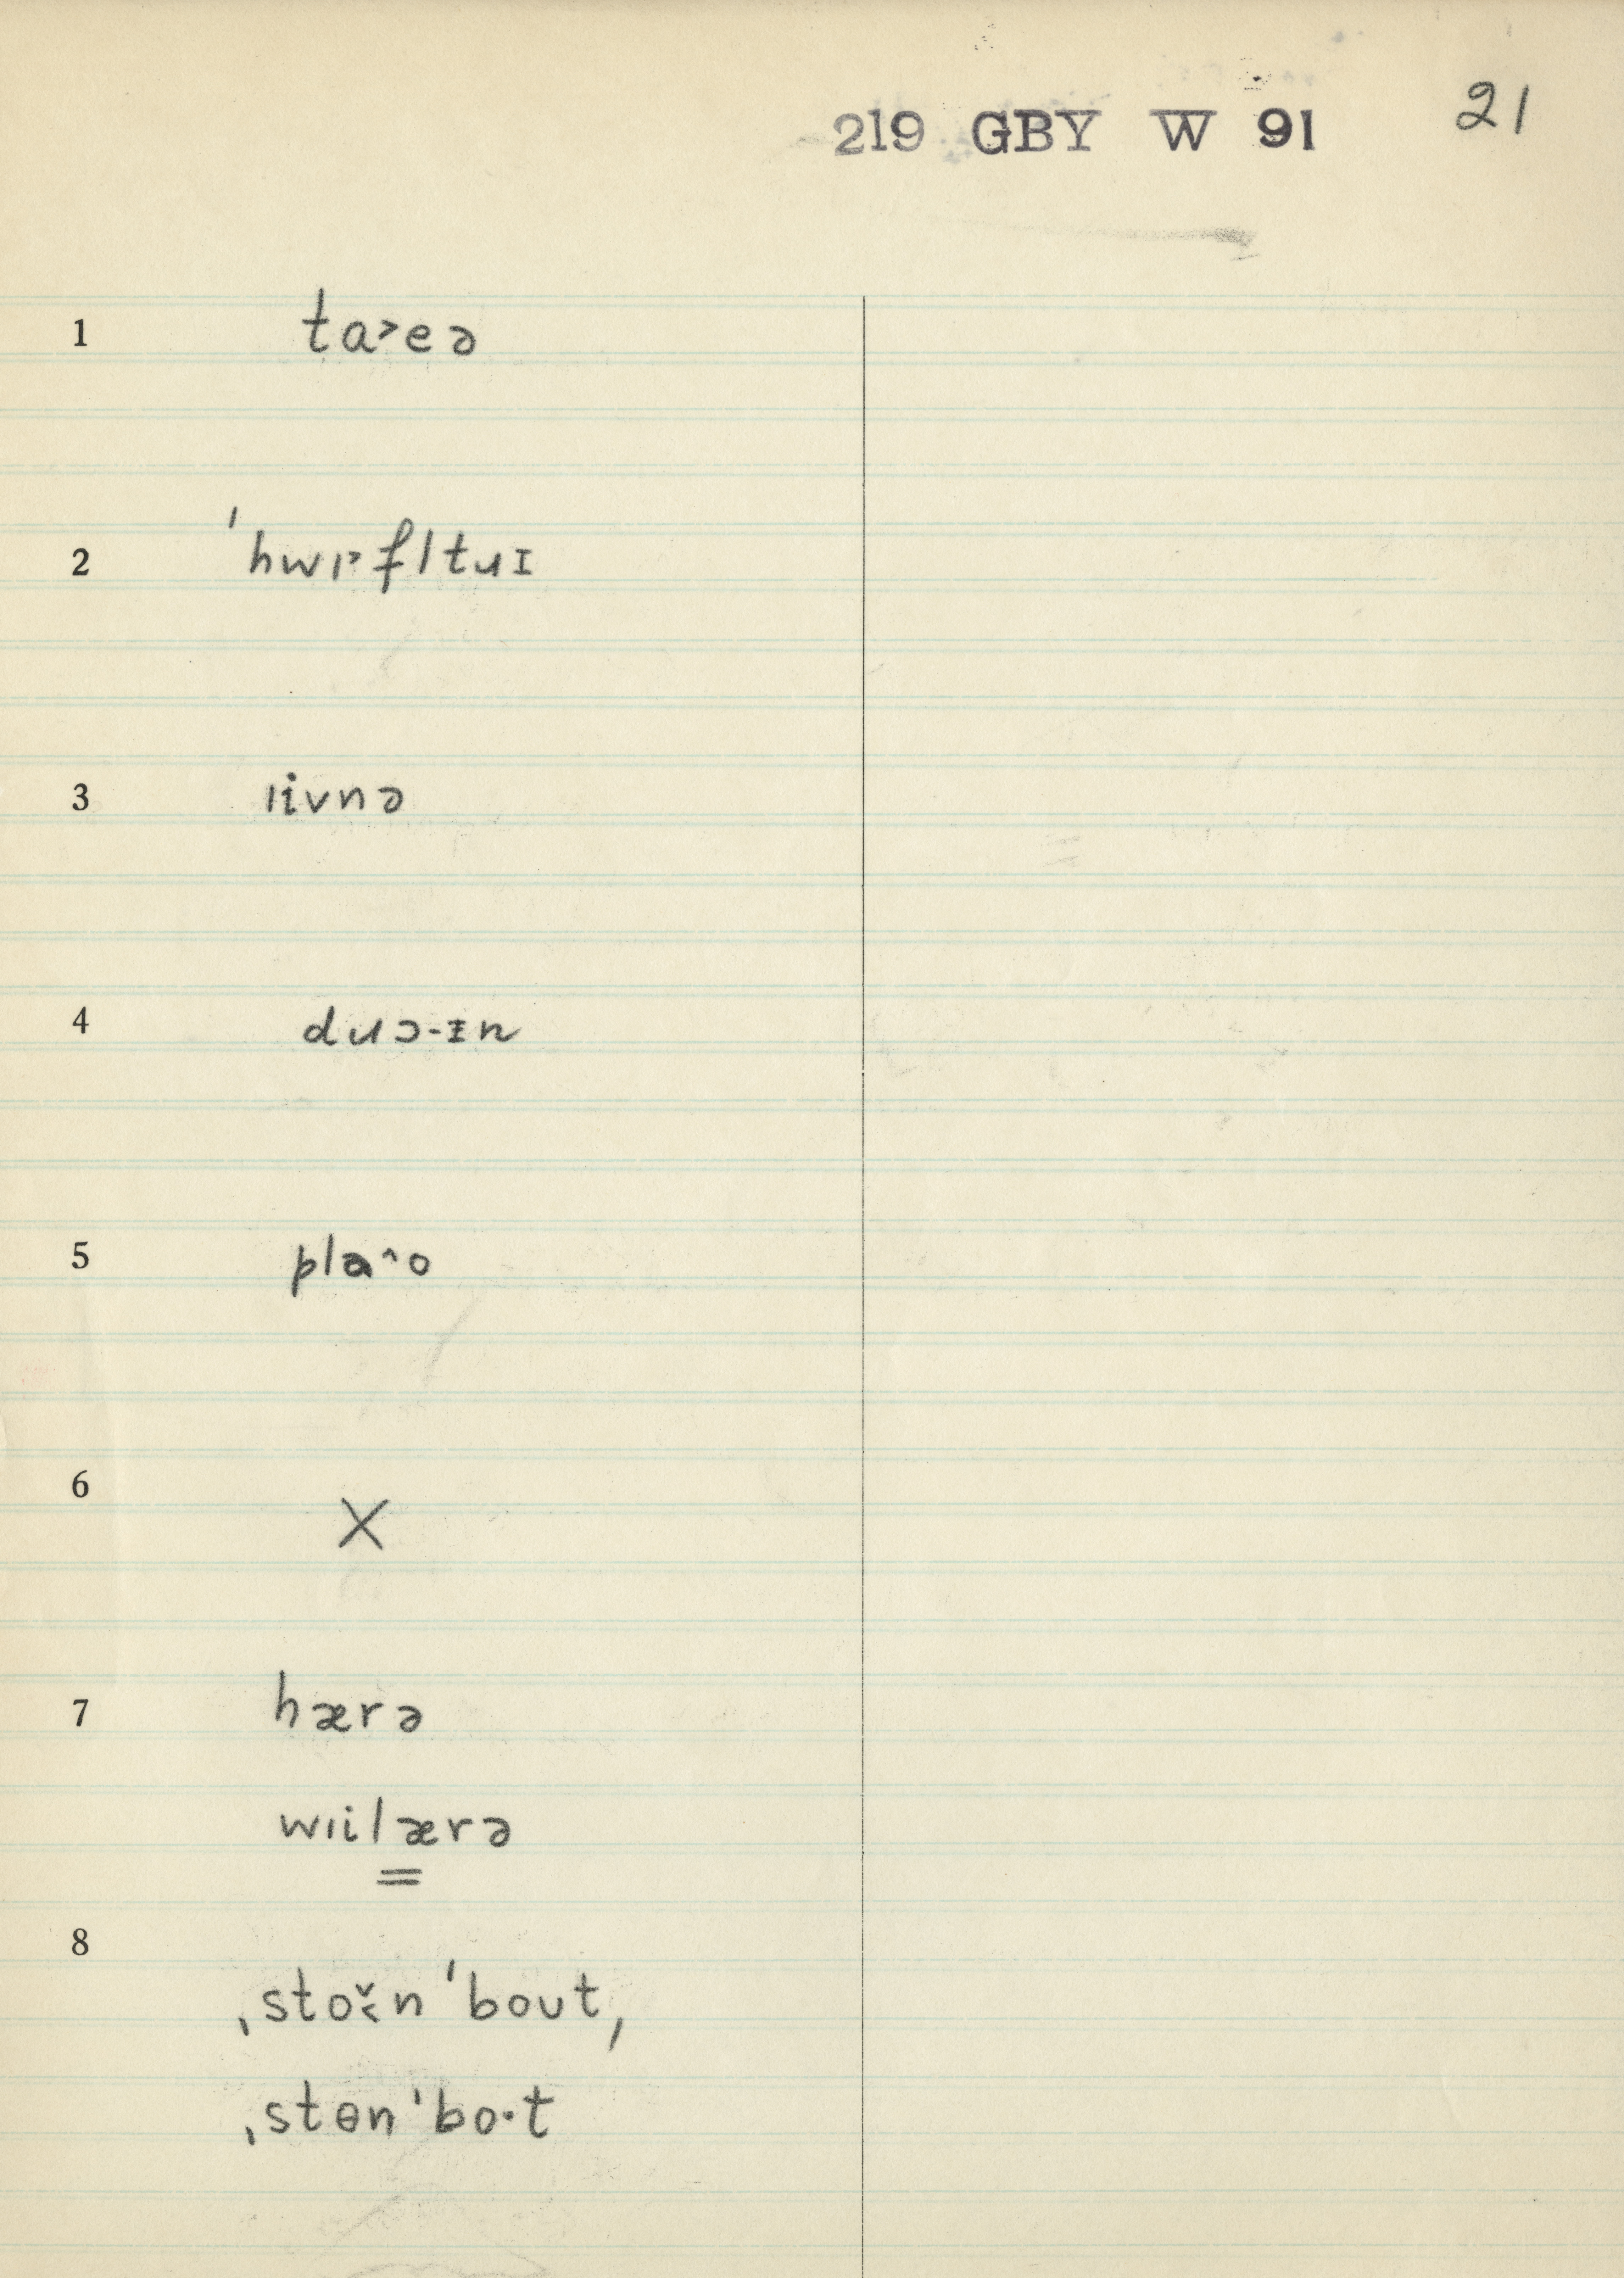 219 GBY W 91 21
1 ta˃eə
2 ˈhwı˃fltuɪ
3 ıivnə
4 duɔ-ᵻn
5 pla^o
6 X
7 hærə
wıilærə
8 ˌstoɪ̆n ˈbout,
ˌstɵn ˈbo·t